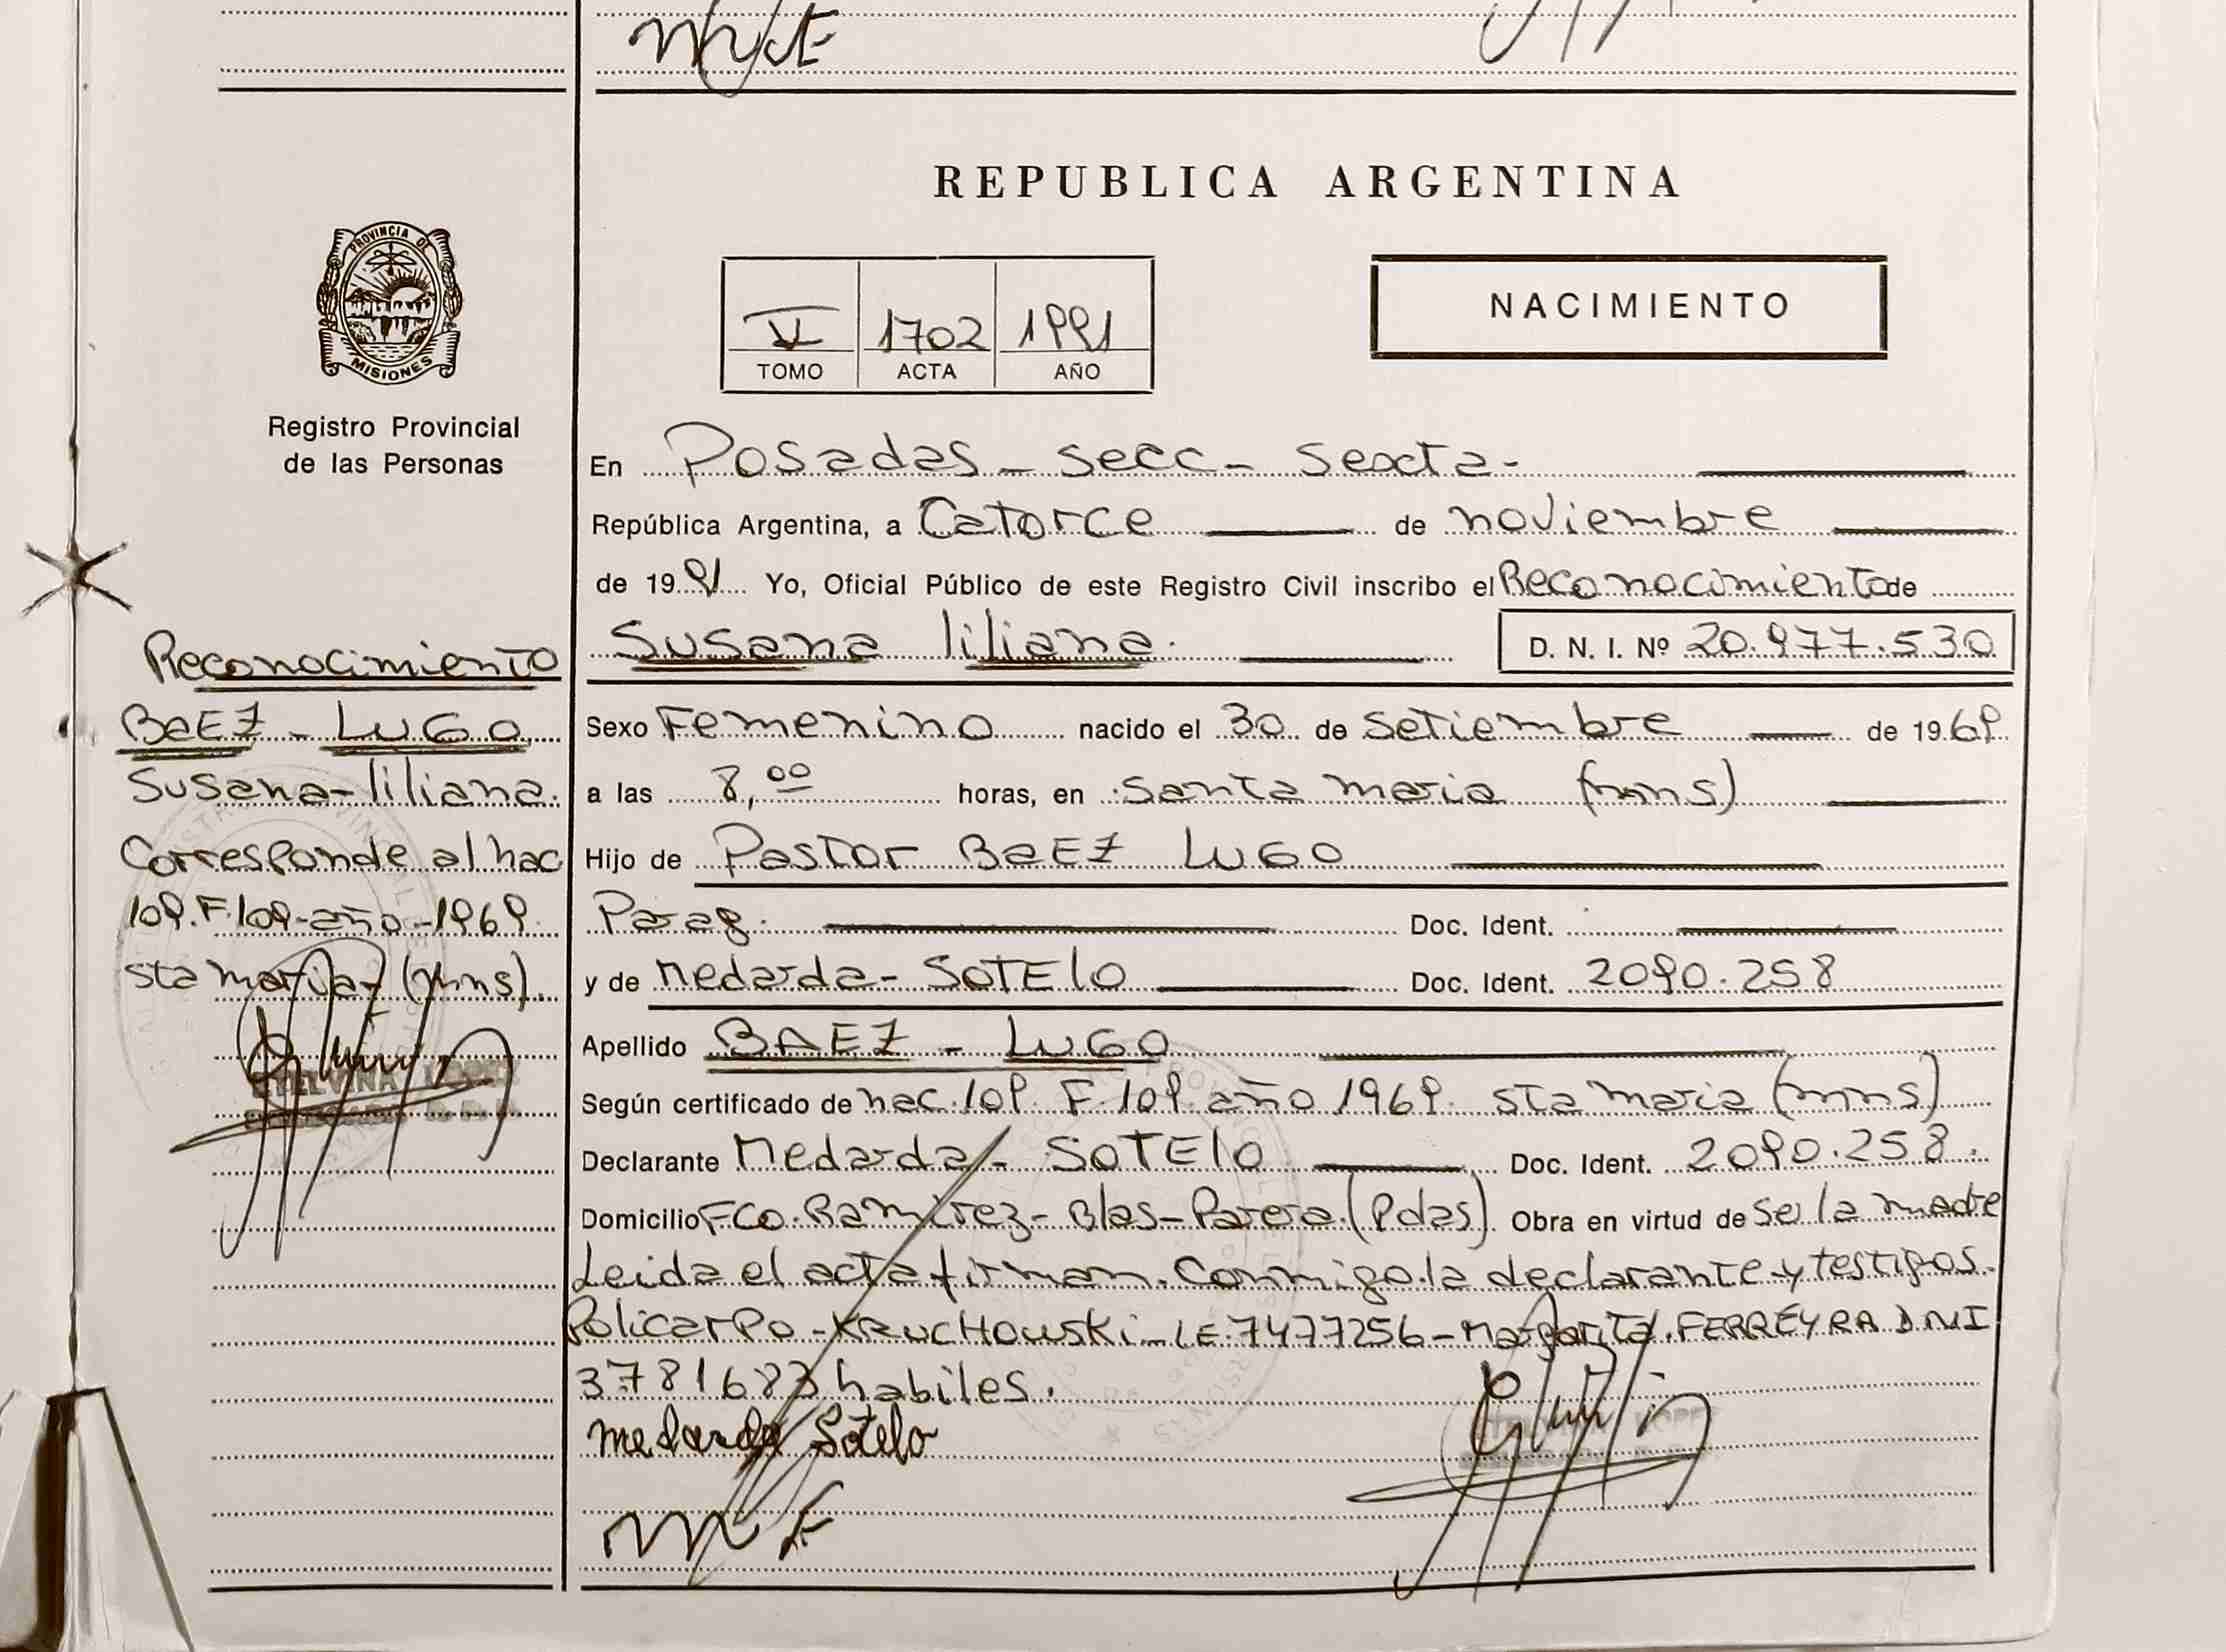 REPUBLICA ARGENTINA
PROVINCIA DE
MISIONES
Registro Provincial
de las Personas
V 1702 1991
TOMO ACTA AÑO
NACIMIENTO
En Posadas - secc - Sexta -
República Argentina, a Catorce de noviembre
de 1991 Yo, Oficial Público de este Registro Civil inscribo el Reconocimiento de
Susana liliana. D. N. I. Nº 20.977.530
Sexo Femenino nacido el 30 de Setiembre de 1969
a las 8,00 horas, en Santa maria (mns)
Hijo de Pastor BaEZ LUGO
Parag. Doc. Ident.
y de Medarda - SOTElo Doc. Ident. 2090.258
Apellido BAEZ - LUGO
Según certificado de nac. 109. F. 109. año 1969. sta maria (mns)
Declarante Medarda - SOTElo Doc. Ident. 2090.258.
Domicilio FCO. Ramirez - Blas - Parera. (Pdas) Obra en virtud de Ser la madre
Leida el acta firman. Conmigo. la declarante y testigos.
Policarpo - KRUCHOwski - LE. 7477256 - Margarita. FERREYRA DNI
3781683 habiles.
medarda Sotelo
Reconocimiento
BaEZ - LUGO
Susana - liliana.
Corresponde al nac
109. F. 109 - año - 1969.
sta maria - (mns).